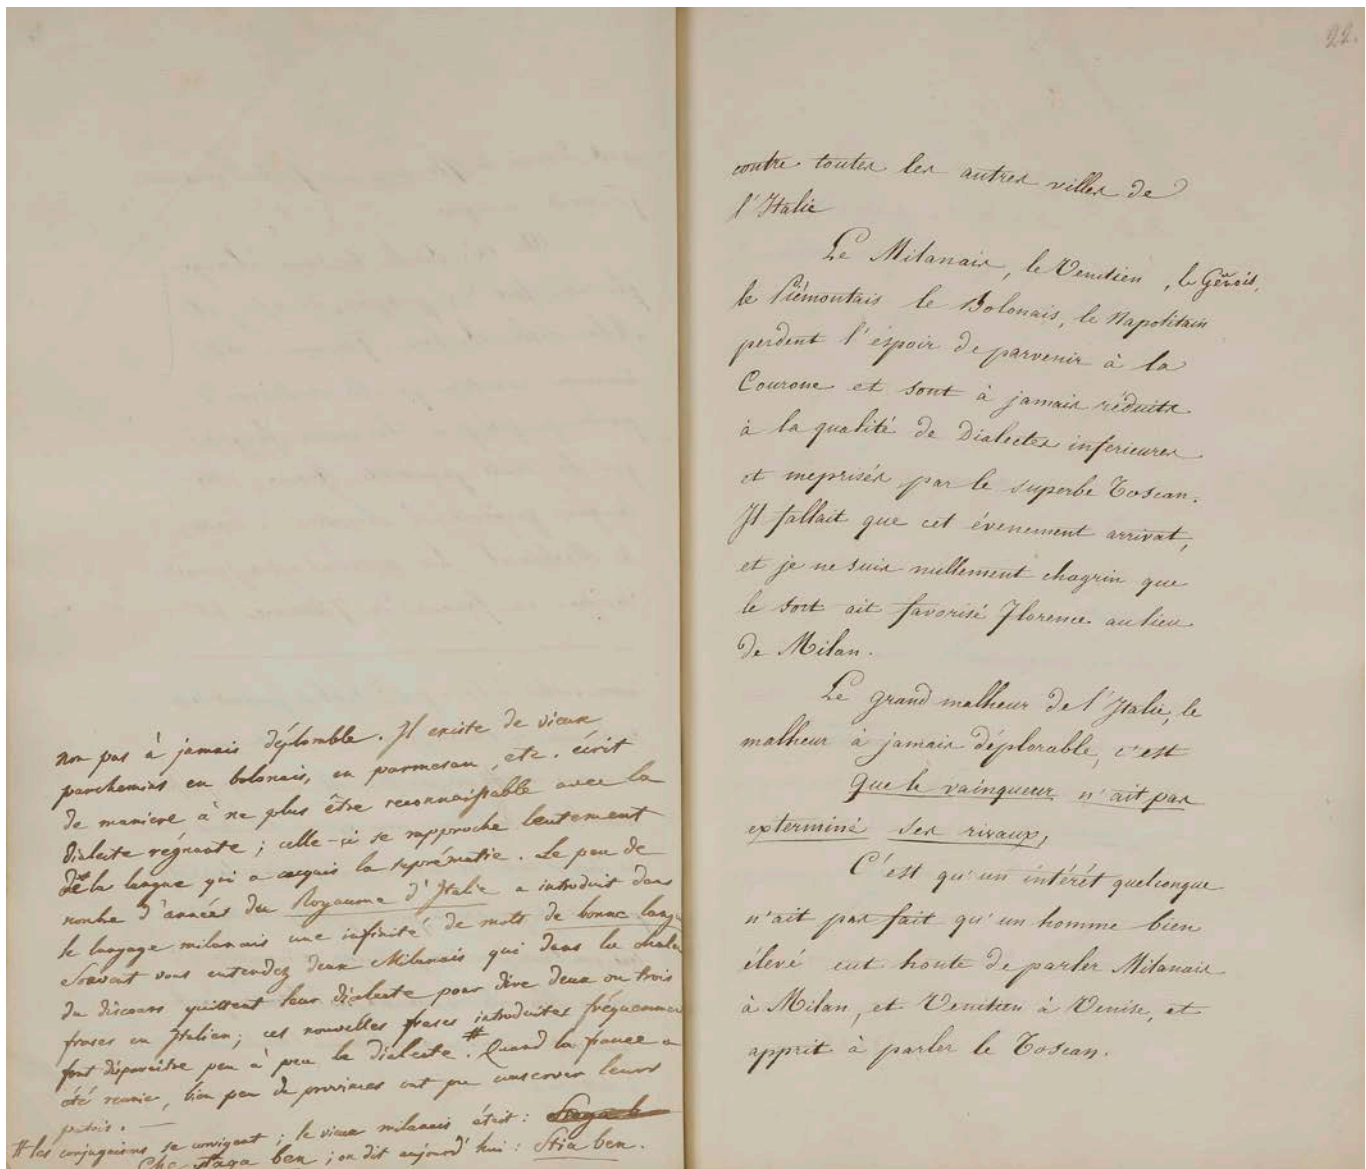 non pas à jamais déplorable. Il existe de vieux
parchemins en bolonais, en parmesan, etc. écrit
de maniere à ne plus être reconnaissable avec la
dialecte régnante ; celle-ci se rapproche lentement
de la langue qui a acquis la suprématie. Le peu de
nombre d'années du Royaume d'Italie a introduit dans
le langage milanais une infinité de mots de bonne langu
Souvent vous entendez deux Milanais qui dans la chaleu
du discours quittent leur dialecte pour dire deux ou trois
frases en Italien; ces nouvelles frases introduites fréquemmen
font disparaître peu à peu le dialecte.# Quand la france a
été reunie, bien peu de provinces ont pu conserver leurs
patois. —
# les conjugaisons se corrigent ; le vieux milanais était : Staga b
Che staga ben ; on dit aujourd'hui : Stia ben.
22.
contre toutes les autres villes de
l'Italie
Le Milanais, le Venitien, le Génois,
le Piémontais le Bolonais, le Napolitain
perdent l'éspoir de parvenir à la
Courone et sont à jamais réduits
à la qualité de Dialectes inferieures
et meprisés par le superbe Toscan.
Il fallait que cet évenement arrivat,
et je ne suis nullement chagrin que
le sort ait favorisé Florence au lieu
de Milan.
Le grand malheur de l'Italie, le
malheur à jamais déplorable, c'est
que le vainqueur n'ait pas
exterminé ses rivaux,
C'est qu'un intérét quelconque
n'ait pas fait qu'un homme bien
élevé eut honte de parler Milanais
à Milan, et Venitien à Venise, et
apprit à parler le Toscan.